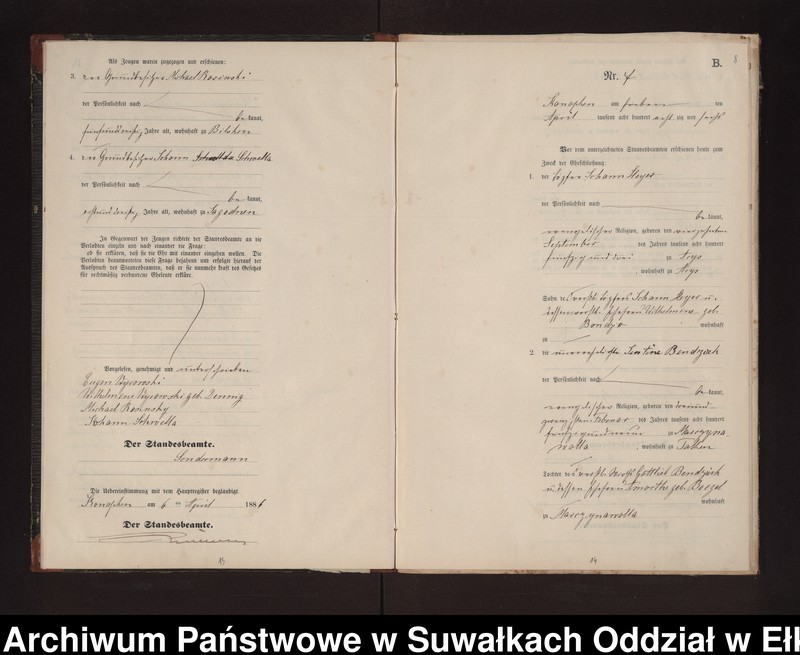 Als Zeugen waren zugezogen und erschienen:
3. der Grundbesitzer Michael Rosinski
der Persönlichkeit nach
be kannt,
fünfunddreißig Jahre alt, wohnhaft zu
4. der Grundbesitzer Johann Schwetta
der Persönlichkeit nach
be kannt,
Jahre alt, wohnhaft zu
In Gegenwart der Zeugen richtete der Standesbeamte an die
Verlobten einzeln und nach einander die Frage:
ob sie erklären, daß sie die Ehe mit einander eingehen wollen. Die
Verlobten beantworteten diese Frage bejahend und erfolgte hierauf der
Ausspruch des Standesbeamten, daß er sie nunmehr kraft des Gesetzes
für rechtmäßig verbundene Eheleute erkläre.
Vorgelesen, genehmigt und unterschrieben
Eugen
Wilhelmine geb.
Michael Rosinsky
Johann Schwetta
Der Standesbeamte.
Sondermann
Die Uebereinstimmung mit dem Hauptregister beglaubigt
am 6 ten April 1886
Der Standesbeamte.
13
B.
8
Nr. 4
am sieben ten
April tausend acht hundert acht zig und sechs
Vor dem unterzeichneten Standesbeamten erschienen heute zum
Zweck der Eheschließung:
1. der Töpfer Johann Heyer
der Persönlichkeit nach
be kannt,
evangelischer Religion, geboren den vierzehnten
September des Jahres tausend acht hundert
fünfzig und drei zu Arys
, wohnhaft zu Arys
Sohn des verstb. Töpfers Johann Heyer u.
dessen verstb. Ehefrau Wilhelmine geb.
wohnhaft
zu
2. die unverehelichte Bendzich
der Persönlichkeit nach
be kannt,
evangelischer Religion, geboren den dreiund
zwanzigsten Februar des Jahres tausend acht hundert
fünfzigundneun zu Marczyna-
wolla wohnhaft zu Talken
Tochter des verstb. Gottlieb Bendzich
u. dessen Ehefrau geb.
wohnhaft
zu Marczynawolla
14
Archiwum Państwowe w Suwałkach Oddział w Ełk